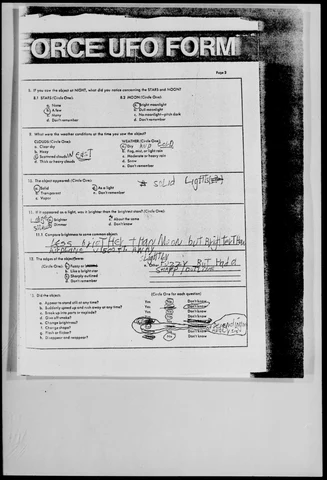 ORCE UFO FORM
Page 2
8. If you saw the object at NIGHT, what did you notice concerning the STARS and MOON?
8.1 STARS (Circle One): 8.2 MOON (Circle One):
a. None a. Bright moonlight
b. A few b. Dull moonlight
c. Many c. No moonlight—pitch dark
d. Don't remember d. Don't remember
9. What were the weather conditions at the time you saw the object?
CLOUDS (Circle One): WEATHER (Circle One):
a. Clear sky a. Dry AND COLD
b. Hazy b. Fog, mist, or light rain
c. Scattered clouds IN EAST c. Moderate or heavy rain
d. Thick or heavy clouds d. Snow
e. Don't remember
10. The object appeared: (Circle One):
a. Solid d. As a light SOLID LIGHTS
b. Transparent e. Don't remember
c. Vapor
11. If it appeared as a light, was it brighter than the brightest stars? (Circle One):
a. Brighter c. About the same
b. Dimmer d. Don't know
11.1 Compare brightness to some common object:
LESS BRIGHTER THAN MOON but BRIGHTER THAN
12. The edges of the object were:
(Circle One): a. Fuzzy or blurred
b. Like a bright star FUZZY BUT HAD
c. Sharply outlined
d. Don't remember
13. Did the object: (Circle One for each question)
a. Appear to stand still at any time? Yes Don't know
b. Suddenly speed up and rush away at any time? Yes Don't know
c. Break up into parts or explode? Yes Don't know
d. Give off smoke? Yes Don't know
e. Change brightness? Don't know
f. Change shape? Don't know
g. Flash or flicker?
h. Disappear and reappear? Yes No Don't know